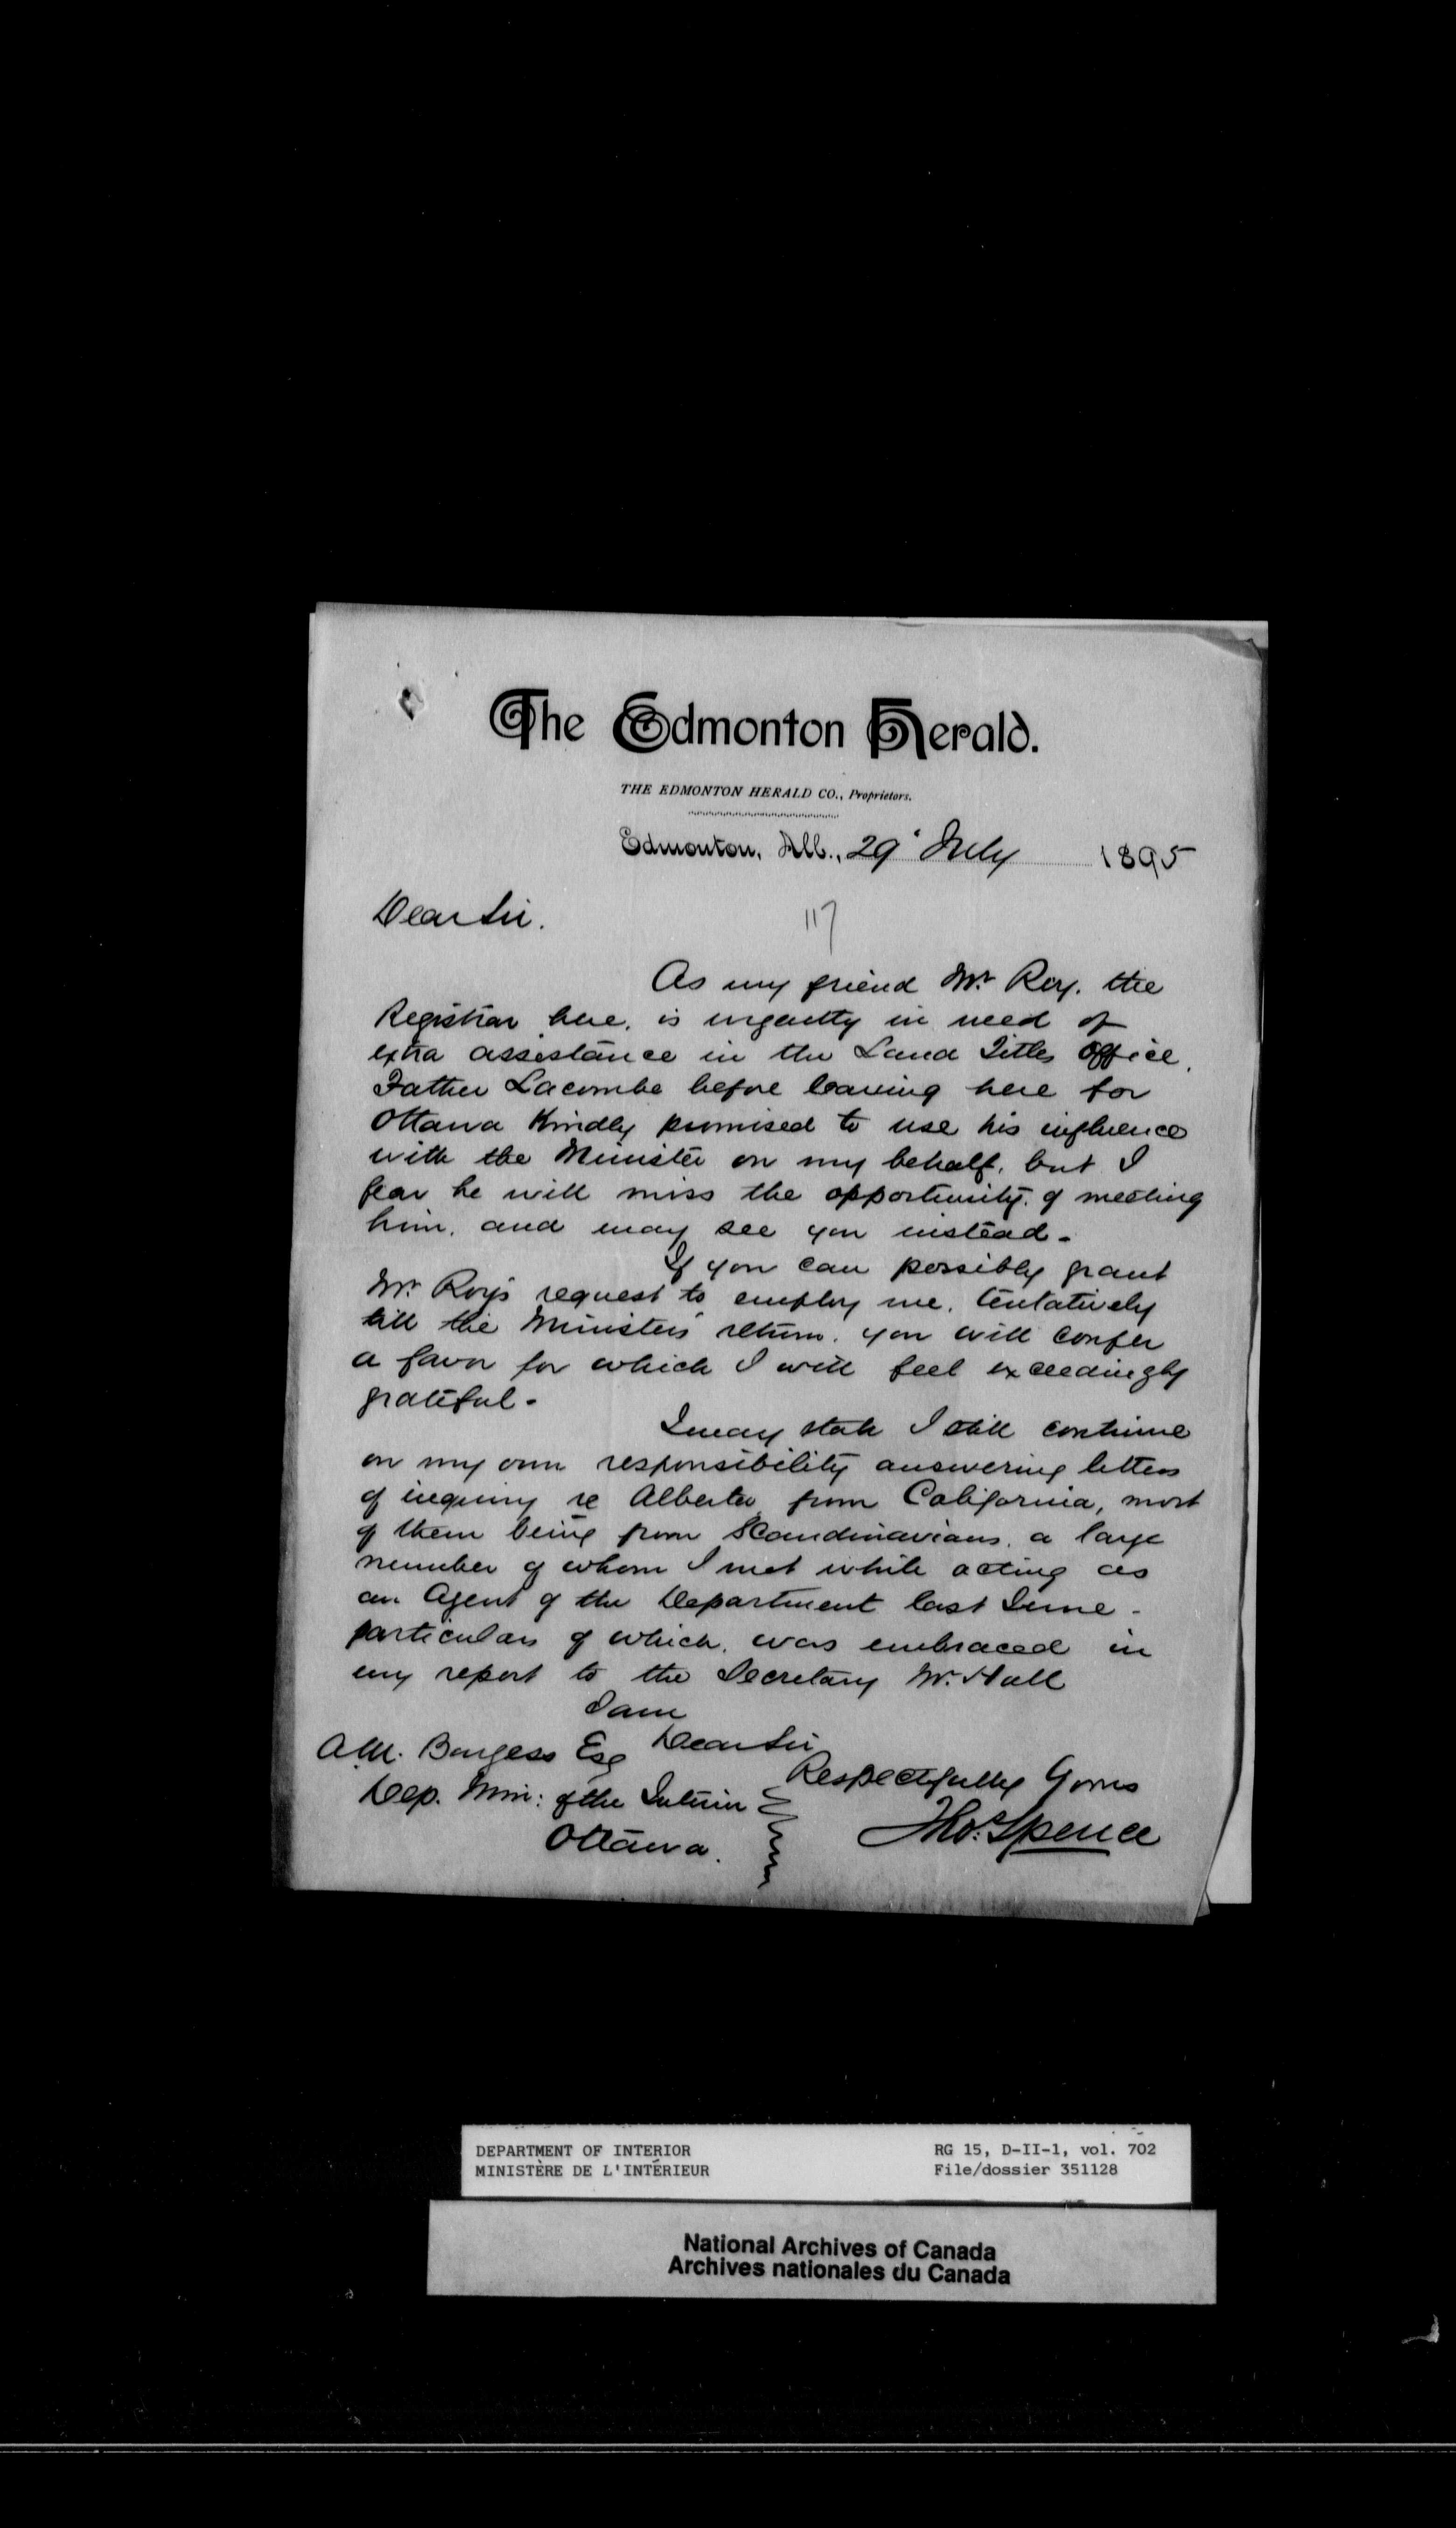 The Edmonton Herald.
THE EDMONTON HERALD CO., Proprietors.
Edmonton, Alb., 29 July 1895
Dear Sir.
117
As my friend Mr Roy. the
Registrar here, is urgently in need of
extra assistance in the Land Titles Office,
Father Lacombe before leaving here for
Ottawa Kindly promised to use his influence
with the Minister on my behalf, but I
fear he will miss the opportunity, of meeting
him, and may see you instead -
If you can possibly grant
Mr Roy's request to employ me, tentatively
till the Ministers return, you will confer
a favor for which I will feel exceedingly
grateful -
I may state I still continue
on my own responsibility answering letters
of inquiry re Alberta from California, most
of them being from Scandinavians, a large
number of whom I met while acting as
an Agent of the Department last June -
particulars of which, was embraced in
my report to the Secretary Mr. Hall
I am
Dear Sir
Respectfully Yours
Tho: Spence
A.M. Burgess Esq
Dep. Min: of the Interior
Ottawa.
DEPARTMENT OF INTERIOR
MINISTÈRE DE L'INTÉRIEUR
RG 15, D-II-1, vol. 702
File/dossier 351128
National Archives of Canada
Archives nationales du Canada